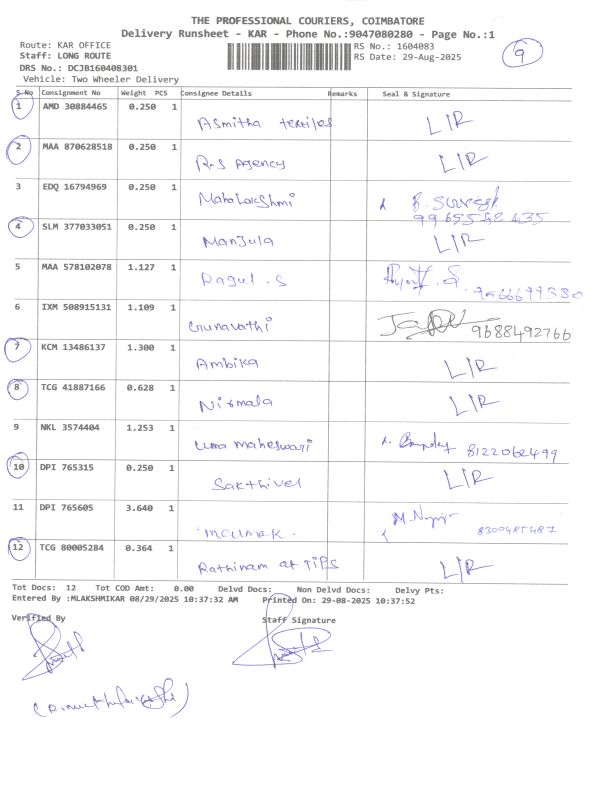 THE PROFESSIONAL COURIERS, COIMBATORE
Delivery Runsheet - KAR - Phone No.:9047080280 - Page No.:1
Route: KAR OFFICE RS No.: 1604083
Staff: LONG ROUTE RS Date: 29-Aug-2025
9
DRS No.: DCJB160408301
Vehicle: Two Wheeler Delivery
S No Consignment No Weight PCS Consignee Details Remarks Seal & Signature
1 AMD 30884465 0.250 1 Asmitha textiles L/R
2 MAA 870628518 0.250 1 R.S Agency L/R
3 EDQ 16794969 0.250 1 Mahalakshmi
4 SLM 377033051 0.250 1 Manjula L/R
5 MAA 578102078 1.127 1 Ragul.S
6 IXM 508915131 1.109 1 Gunavathi 9688492766
7 KCM 13486137 1.300 1 Ambika L/R
8 TCG 41887166 0.628 1 Nirmala L/R
9 NKL 3574404 1.253 1 Uma maheswari 8122062499
10 DPI 765315 0.250 1 Sakthivel L/R
11 DPI 765605 3.640 1
12 TCG 80005284 0.364 1 Rathinam at TIPS L/R
Tot Docs: 12 Tot COD Amt: 0.00 Delvd Docs: Non Delvd Docs: Delvy Pts:
Entered By :MLAKSHMIKAR 08/29/2025 10:37:32 AM Printed On: 29-08-2025 10:37:52
Verified By Staff Signature